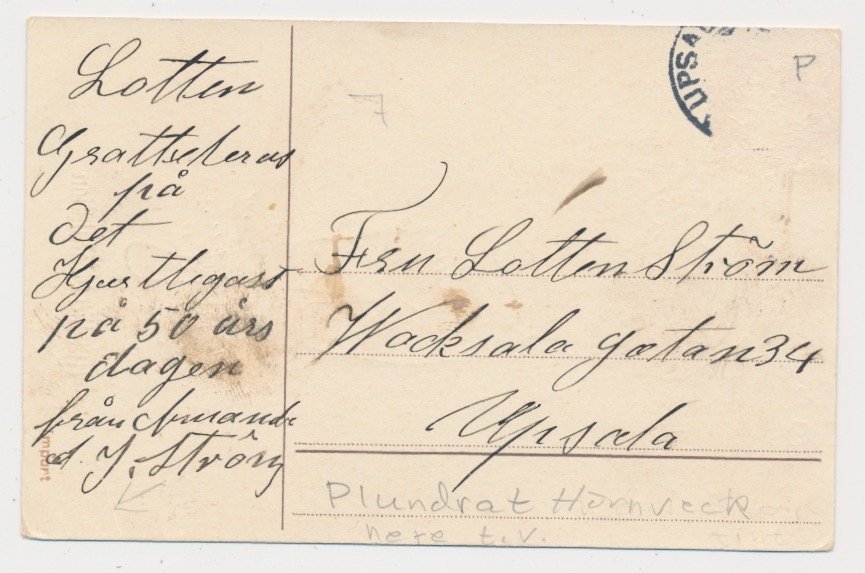 Lotten
Grattuleras
på
det
Hjertligast
på 50 års
dagen
från Amanda
J. Ström
Fru Lotten Ström
Wacksala gatan 34
Upsala
UPSA
P
7
import
Plundrat Hörnveck
nere t.v.